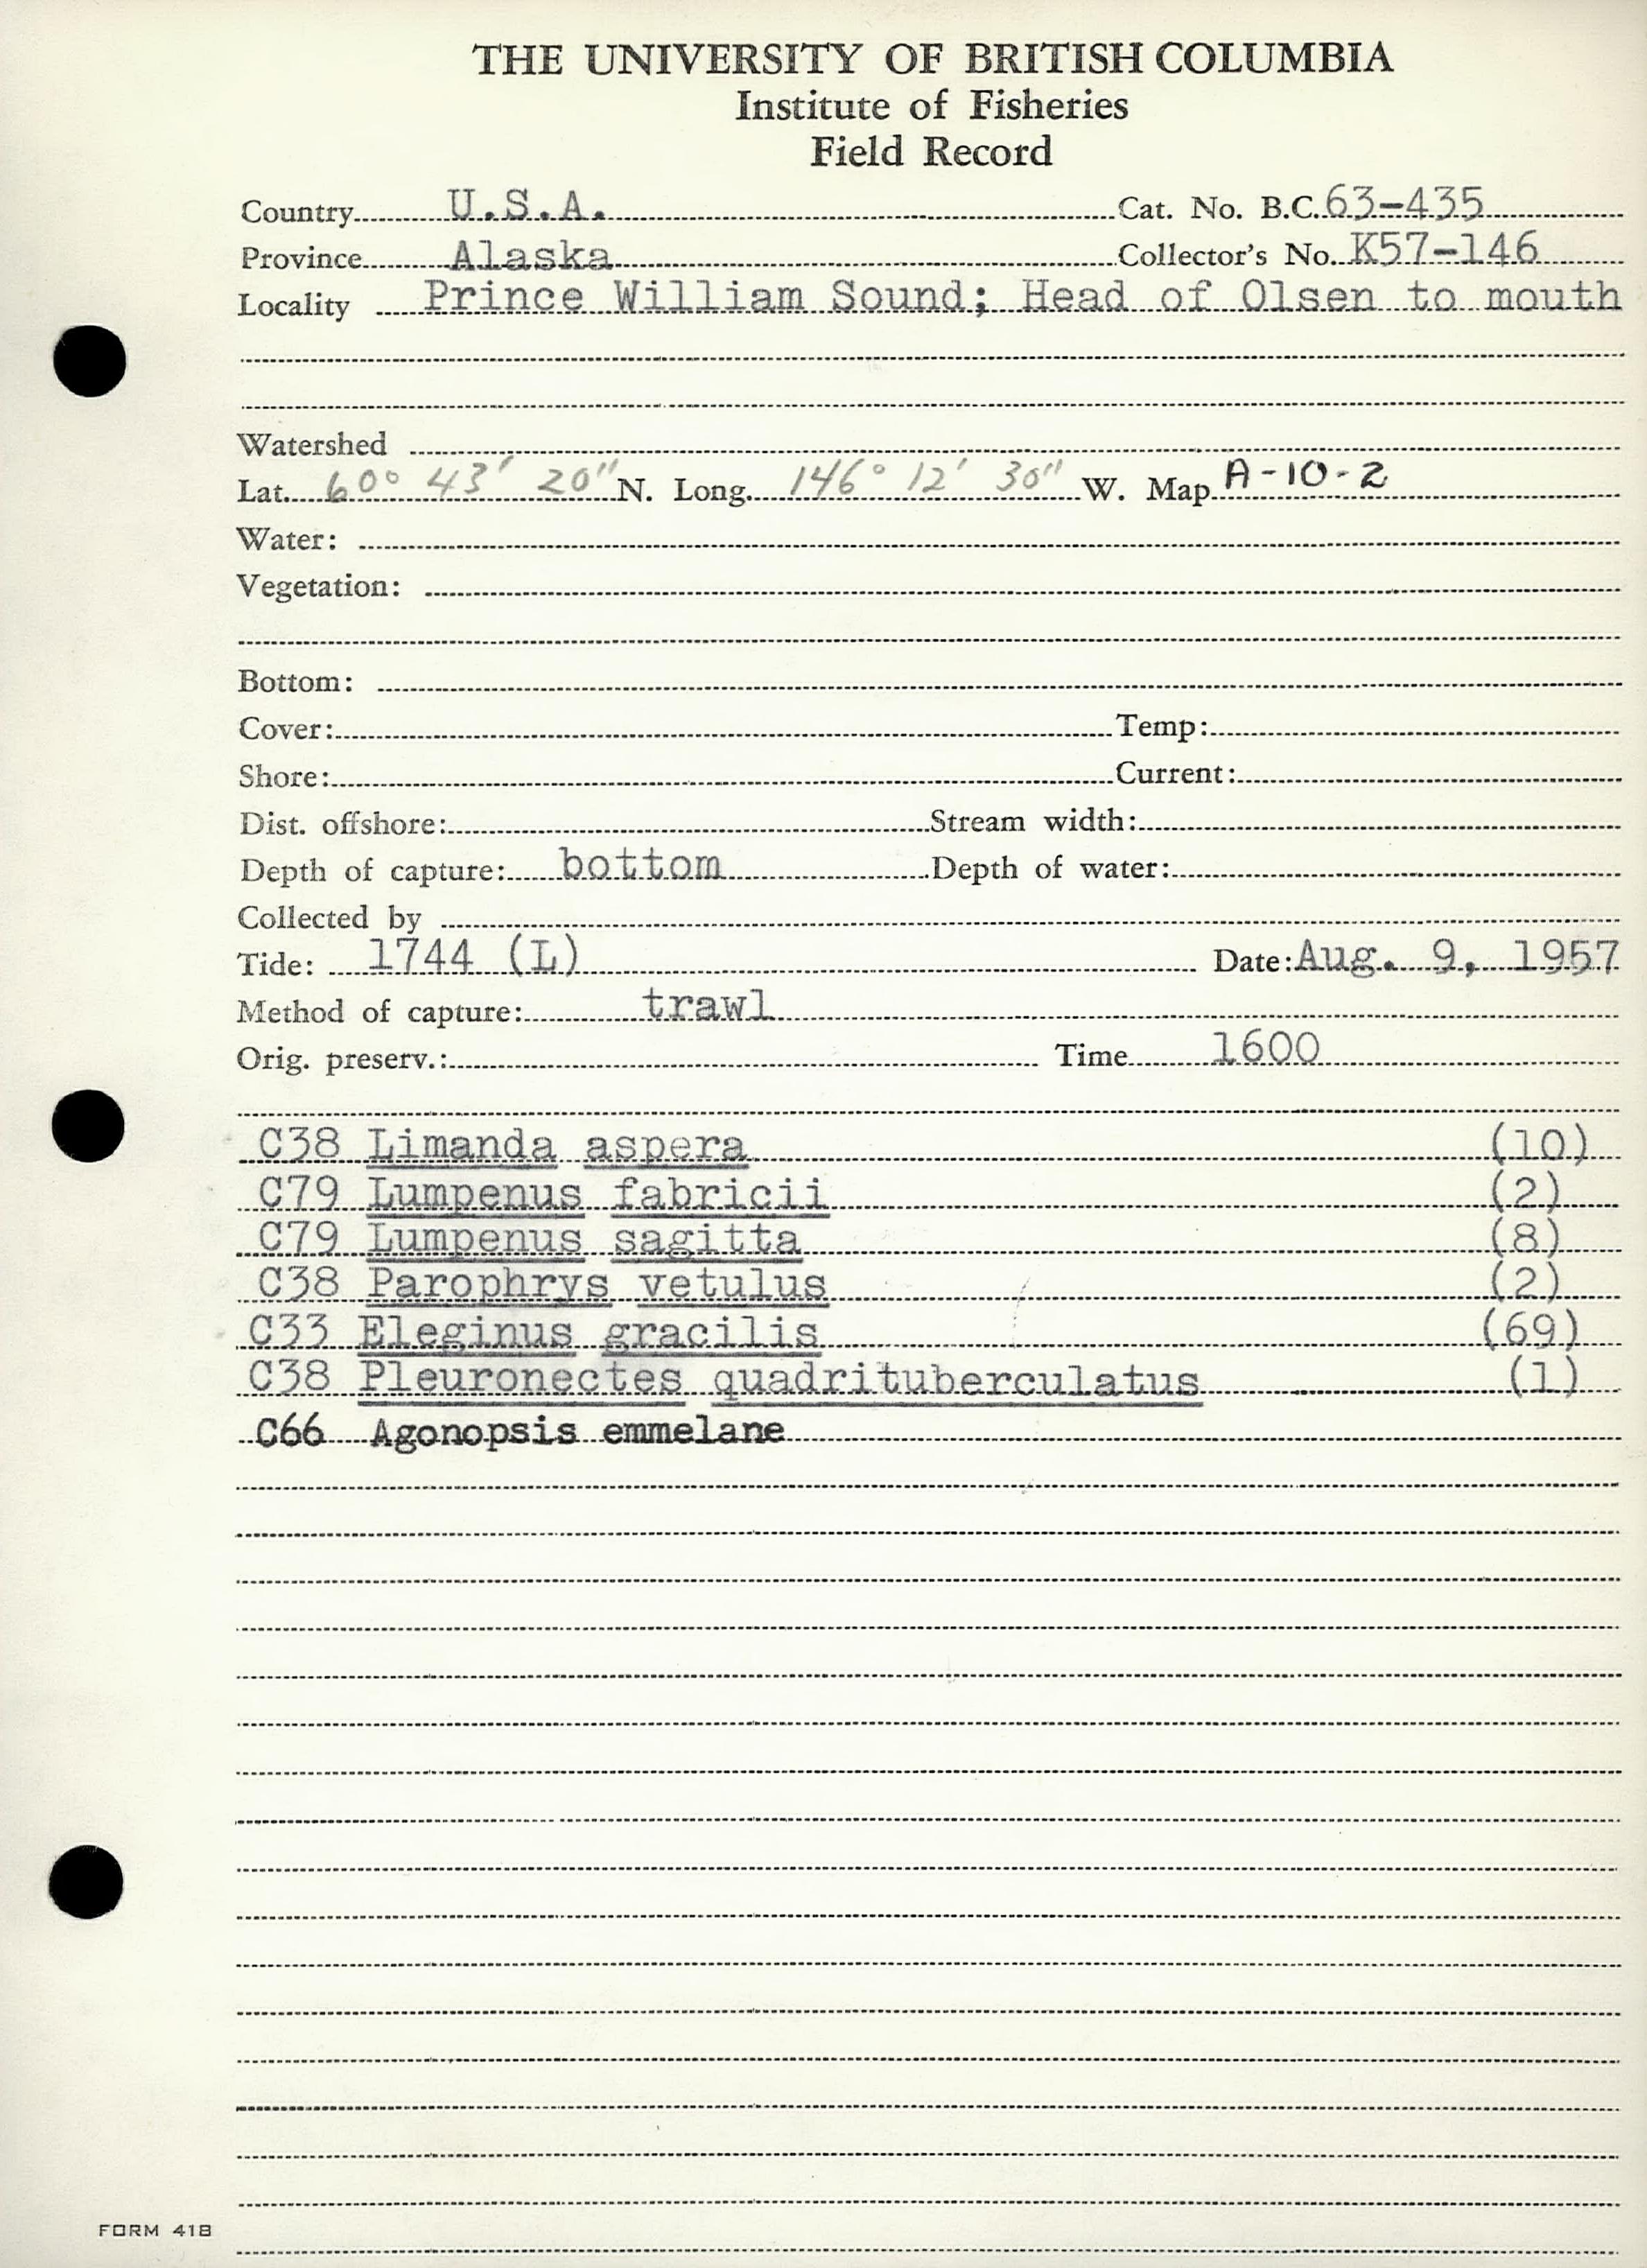 THE UNIVERSITY OF BRITISH COLUMBIA
Institute of Fisheries
Field Record
Country U.S.A. Cat. No. B.C. 63-435
Province Alaska Collector's No. K57-146
Locality Prince William Sound; Head of Olsen to mouth
Watershed
Lat. 60° 43' 20" N. Long. 146° 12' 30" W. Map A-10-2
Water:
Vegetation:
Bottom:
Cover: Temp:
Shore: Current:
Dist. offshore: Stream width:
Depth of capture: bottom Depth of water:
Collected by
Tide: 1744 (L) Date: Aug. 9, 1957
Method of capture: trawl
Orig. preserv.: Time 1600
C38 Limanda aspera (10)
C79 Lumpenus fabricii (2)
C79 Lumpenus sagitta (8)
C38 Parophrys vetulus (2)
C33 Eleginus gracilis (69)
C38 Pleuronectes quadrituberculatus (1)
C66 Agonopsis emmelane
FORM 418